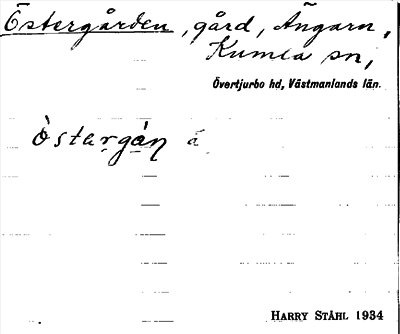 Östergården, gård, Ängarn,
Kumla sn,
Övertjurbo hd, Västmanlands län.
òstargán å
HARRY STÅHL 1934